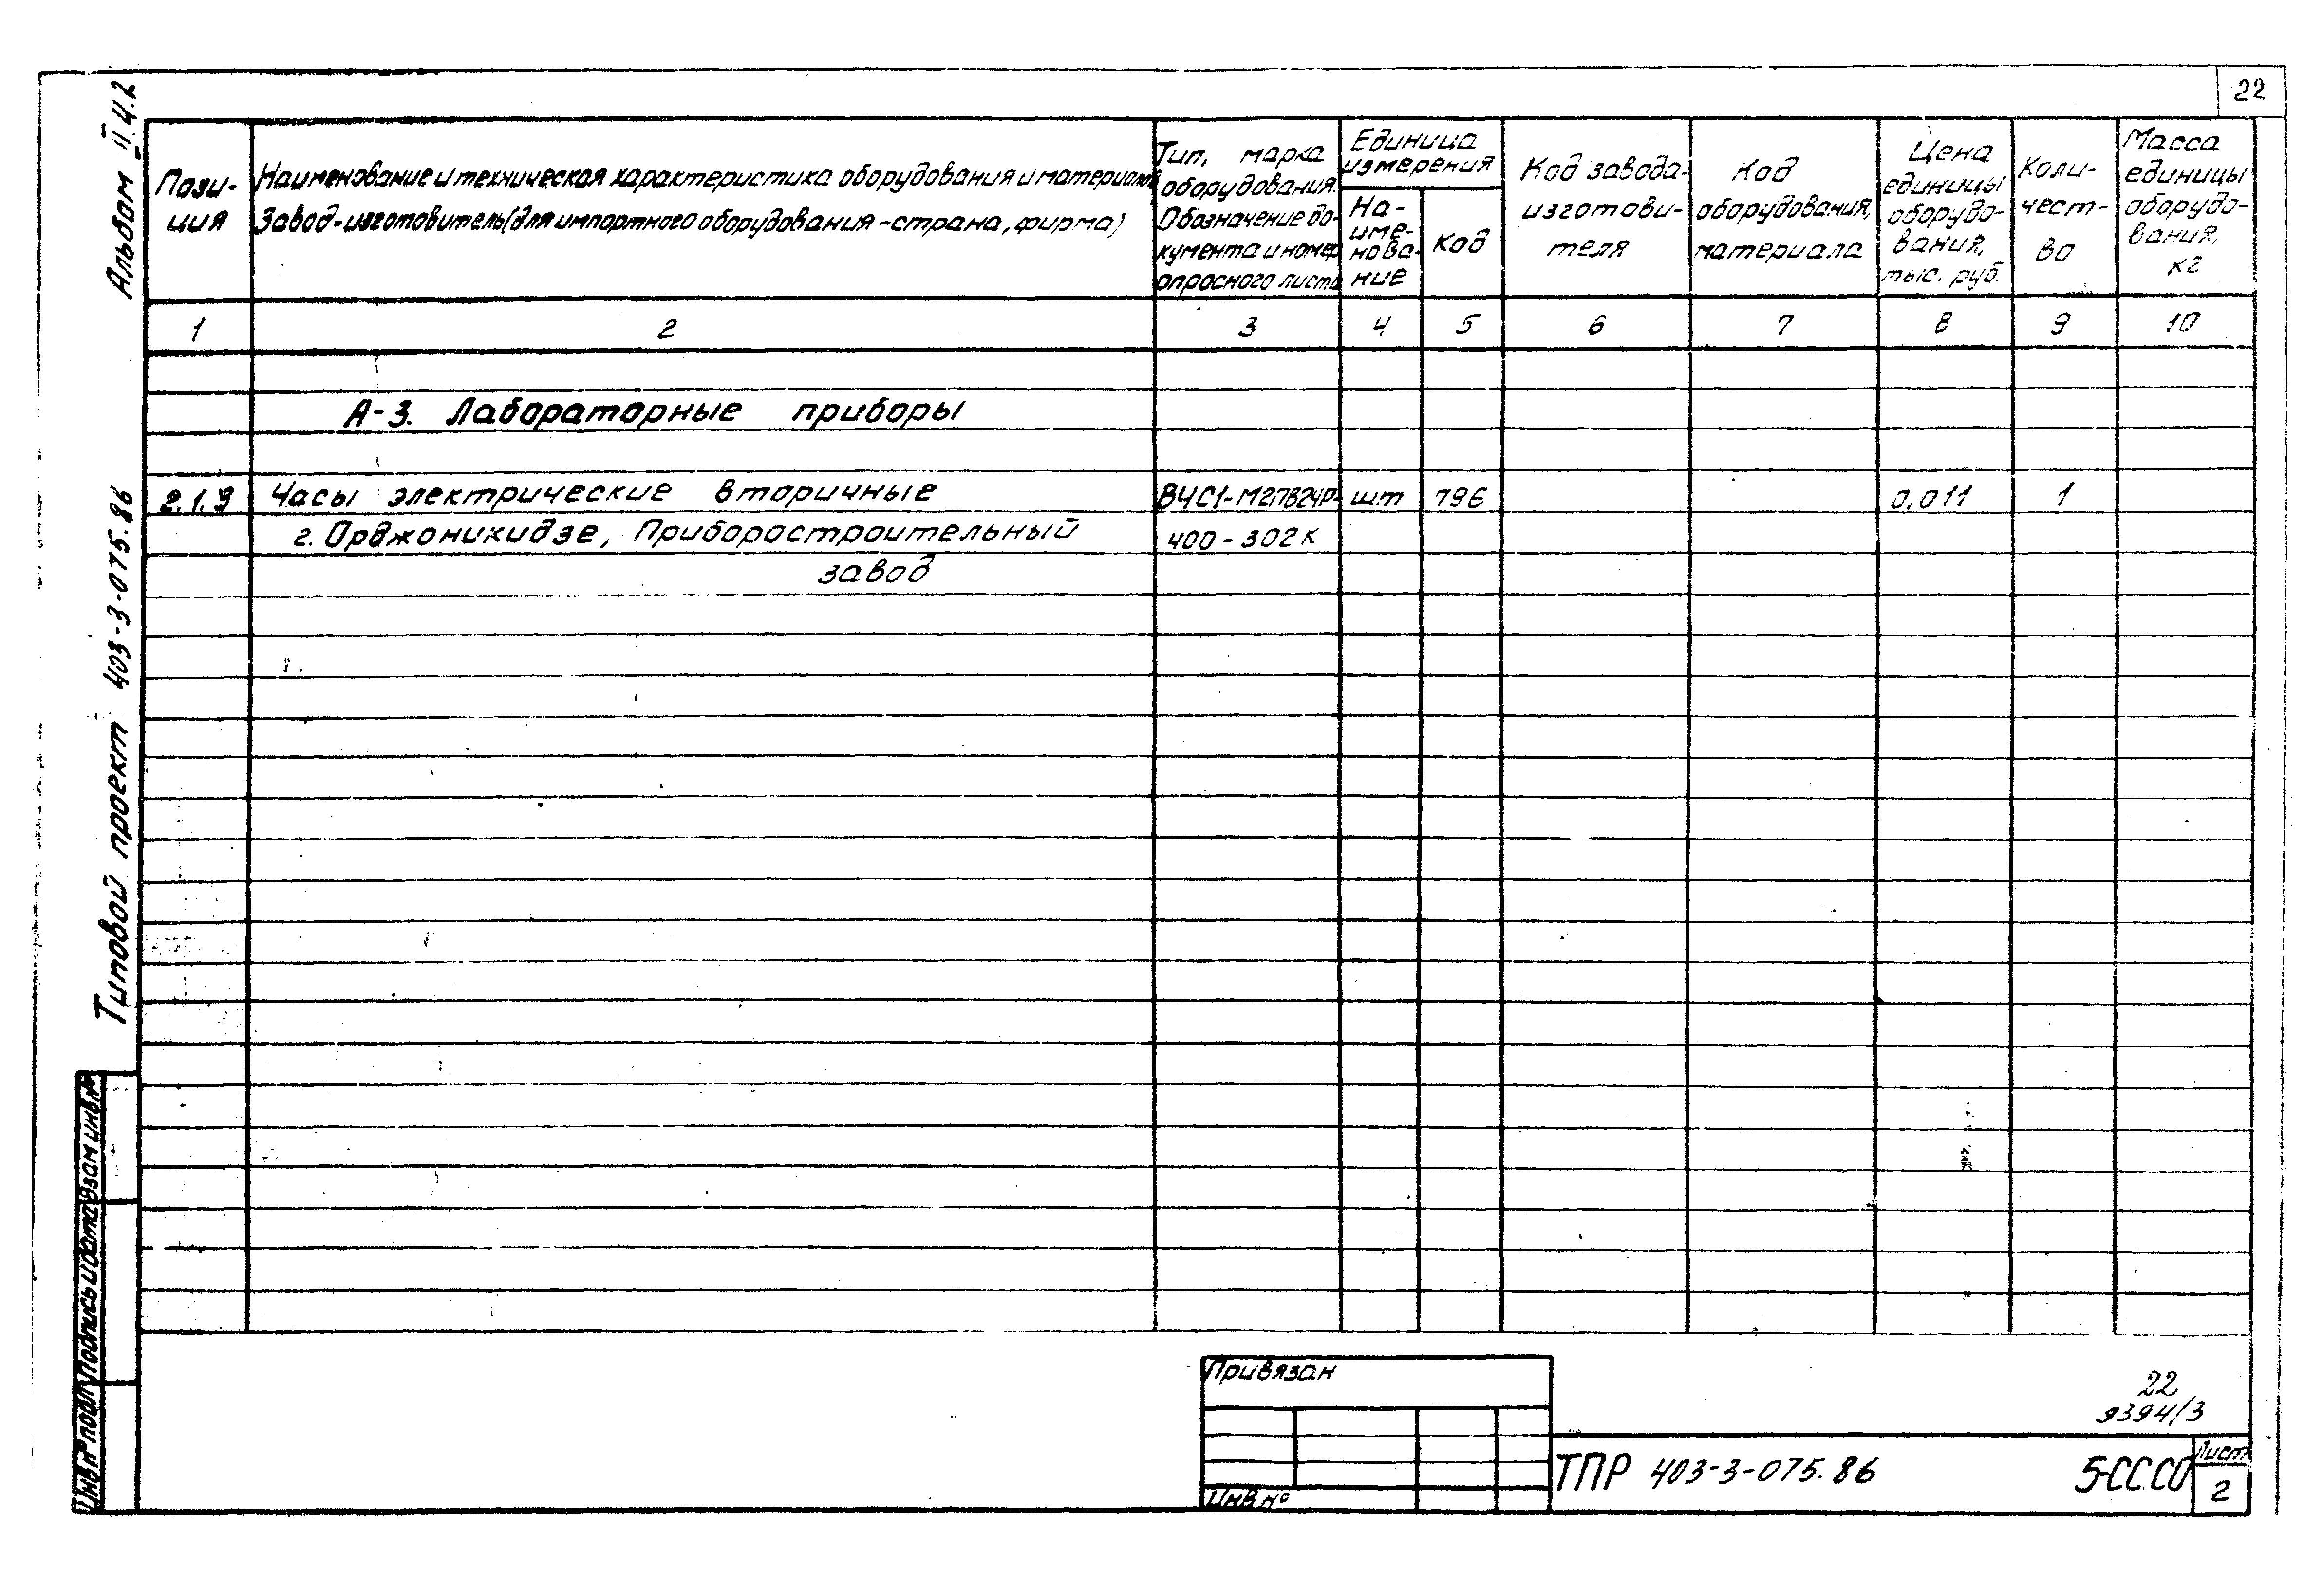 22
Альбом II.4.2
Типовой проект 403-3-075.86
Пози-
ция
Наименование и техническая характеристика оборудования и материалов
Завод-изготовитель (для импортного оборудования - страна, фирма)
Тип, марка
оборудования.
Обозначение до-
кумента и номер
опросного листа
Единица
измерения
На-
име-
нова-
ние
Код
Код завода-
изготови-
теля
Код
оборудования,
материала
Цена
единицы
оборудо-
вания,
тыс. руб.
Коли-
чест-
во
Масса
единицы
оборудо-
вания,
кг
1 2 3 4 5 6 7 8 9 10
А-3. Лабораторные приборы
2.1.9 Часы электрические вторичные ВЧС1-М2ПВ24Р- шт 796 0.011 1
г. Орджоникидзе, Приборостроительный 400-302К
завод
Взам инв №
Подпись и дата
Инв № подл
Привязан
Инв №
22
9394/3
ТПР 403-3-075.86 5-СС.СО
Лист
2